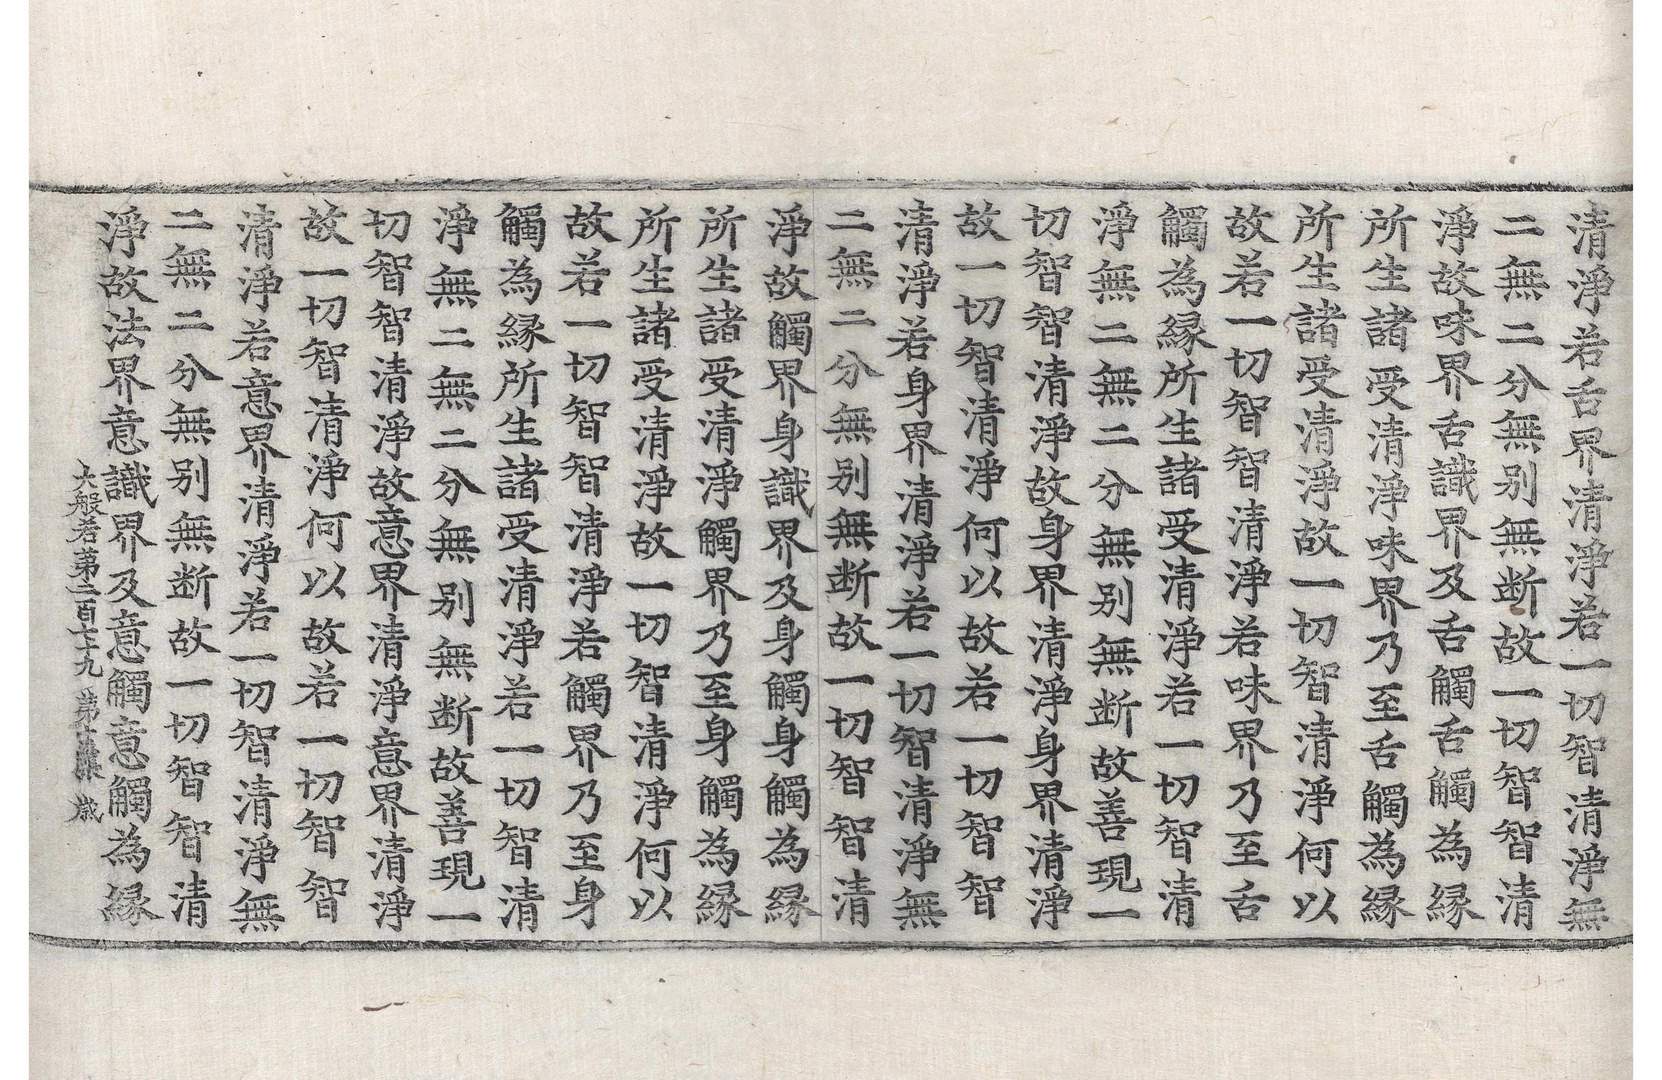 清淨若舌界清淨若一切智清淨無
二無二分無别無断故一切智智清
淨故味界舌識界及舌觸舌觸為縁
所生諸受清淨味界乃至舌觸為縁
所生諸受清淨故一切智清淨何以
故若一切智智清淨若味界乃至舌
觸為縁所生諸受清淨若一切智清
淨無二無二分無别無断故善現一
切智智清淨故身界清淨身界清淨
故一切智清淨何以故若一切智智
清淨若身界清淨若一切智清淨無
二無二分無别無断故一切智智清
淨故觸界身識界及身觸身觸為縁
所生諸受清淨觸界乃至身觸為縁
所生諸受清淨故一切智清淨何以
故若一切智智清淨若觸界乃至身
觸為縁所生諸受清淨若一切智清
淨無二無二分無别無断故善現一
切智智清淨故意界清淨意界清淨
故一切智清淨何以故若一切智智
清淨若意界清淨若一切智清淨無
二無二分無别無断故一切智智清
淨故法界意識界及意觸意觸為縁
大般若第二百七十九 第 張 歲